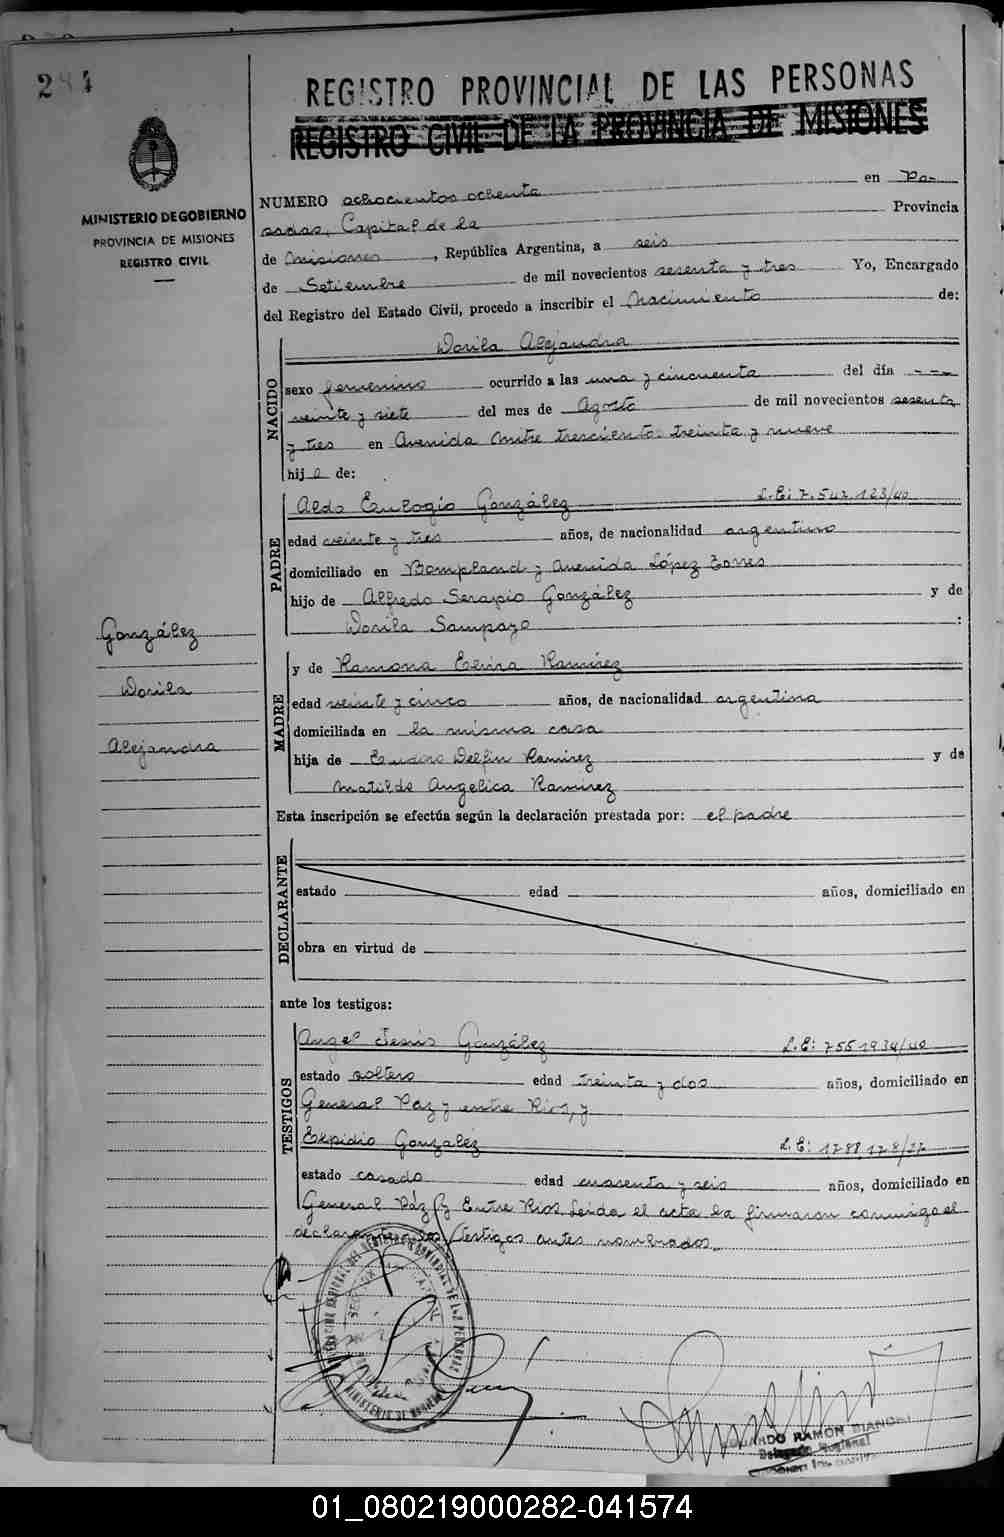 284
REGISTRO PROVINCIAL DE LAS PERSONAS
REGISTRO CIVIL DE LA PROVINCIA DE MISIONES
MINISTERIO DE GOBIERNO
PROVINCIA DE MISIONES
REGISTRO CIVIL
NUMERO ochocientos ochenta en Po-
sadas, Capital de la Provincia
de Misiones, República Argentina, a seis
de Setiembre de mil novecientos sesenta y tres Yo, Encargado
del Registro del Estado Civil, procedo a inscribir el Nacimiento de:
NACIDO
Dorila Alejandra
sexo femenino ocurrido a las una y cincuenta del día ---
veinte y siete del mes de Agosto de mil novecientos sesenta
y tres en Avenida Mitre trescientos treinta y nueve
hija de:
PADRE
Aldo Eulogio González L.E: 7.547.123/40
edad veinte y tres años, de nacionalidad argentino
domiciliado en Bompland y Avenida López Torres
hijo de Alfredo Serapio González y de
Dorila Sampayo :
González
Dorila
Alejandra
MADRE
y de Ramona Elvira Ramírez
edad veinte y cinco años, de nacionalidad argentina
domiciliada en la misma casa
hija de Delfin Ramírez y de
Matilde Angelica Ramirez
Esta inscripción se efectúa según la declaración prestada por: el padre
DECLARANTE
estado edad años, domiciliado en
obra en virtud de
ante los testigos:
TESTIGOS
Angel Jesús González L.E: 7551934/40
estado soltero edad treinta y dos años, domiciliado en
General Paz y entre Rios, y
Expidio González L.E: 1788.128/27
estado casado edad cuarenta y seis años, domiciliado en
General Páz y Entre Rios. Leída el acta la firmaron conmigo el
declarante y los testigos antes nombrados.
EDUARDO RAMON BIANCHI
Delegado Regional
01_080219000282-041574